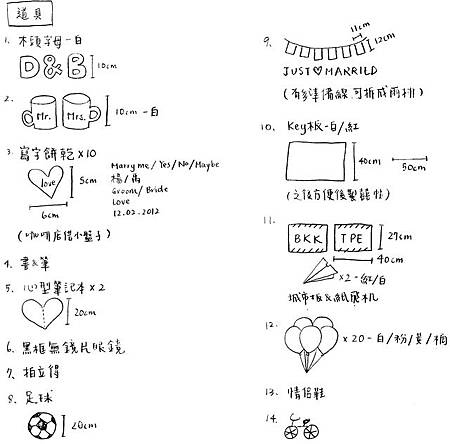 道具
1. 木頭字母-白
D&B 10cm
2.
Mr. Mrs. 10cm-白
3. 寫字餅乾 x10
love 5cm
6cm
Marry me / Yes / No / Maybe
楊/
Groom / Bride
Love
12.02.2012
(咖啡店借小盤子)
4. 書&筆
5. 心型筆記本 x2
20cm
6. 黑框無鏡片眼鏡
7. 拍立得
8. 足球
20cm
9.
11cm
12cm
JUST♡MARRIED
(有多準備線,可拆成兩排)
10. Key板-白/紅
40cm
50cm
(之後方便後製)
11.
BKK TPE 27cm
40cm
x2-紅/白
城市板&紙飛机
12.
x20-白/粉/黃/桃
13. 情侶鞋
14.